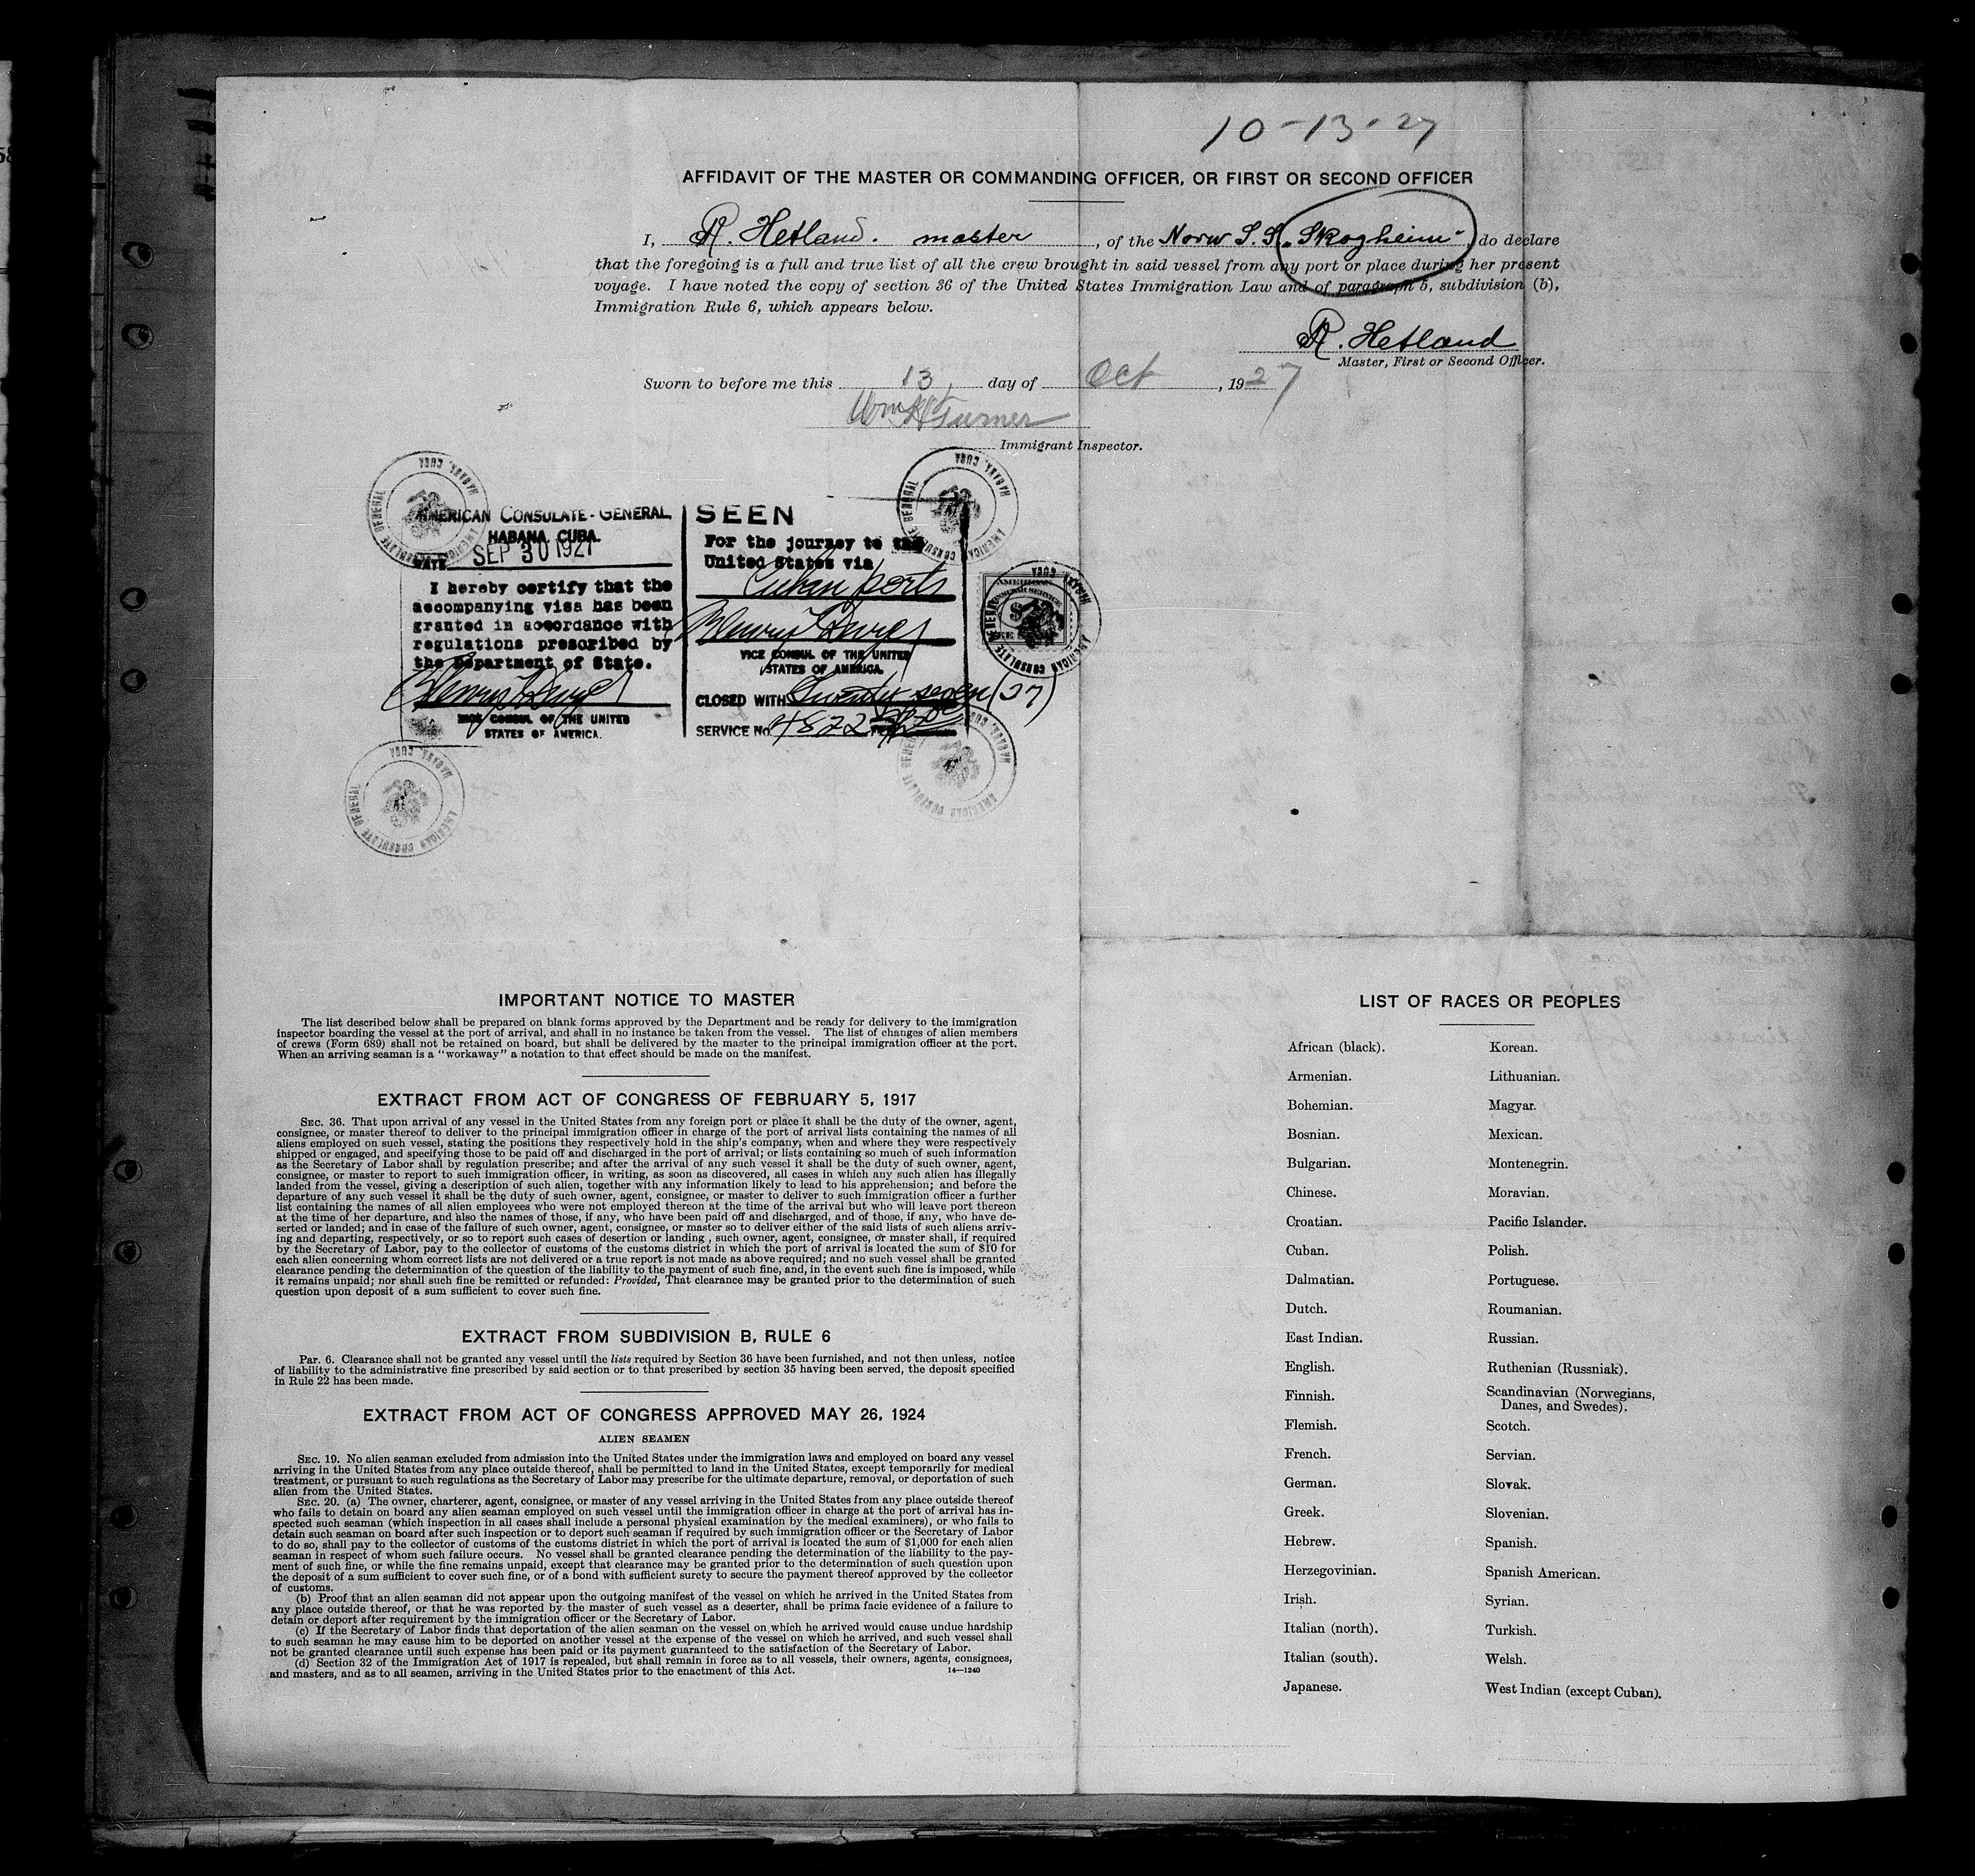 10-13-27
AFFIDAVIT OF THE MASTER OR COMMANDING OFFICER, OR FIRST OR SECOND OFFICER
I, R. Hetland. master, of the Norw S.S. "Skogheim", do declare
that the foregoing is a full and true list of all the crew brought in said vessel from any port or place during her present
voyage. I have noted the copy of section 36 of the United States Immigration Law and of paragraph 5, subdivision (b),
Immigration Rule 6, which appears below.
R. Hetland
Master, First or Second Officer.
Sworn to before me this 13, day of Oct, 1927
Wm H Turner
Immigrant Inspector.
AMERICAN CONSULATE-GENERAL
HABANA, CUBA.
DATE SEP 30 1927
I hereby certify that the
accompanying visa has been
granted in accordance with
regulations prescribed by
the Department of State.
VICE CONSUL OF THE UNITED
STATES OF AMERICA.
SEEN
For the journey to the
United States via
Cuban ports
VICE CONSUL OF THE UNITED
STATES OF AMERICA.
CLOSED WITH Twenty seven (27)
SERVICE No. 4872
AMERICAN CONSULATE GENERAL HABANA, CUBA
AMERICAN CONSULATE GENERAL HABANA, CUBA
AMERICAN CONSULATE GENERAL HABANA, CUBA
AMERICAN CONSULATE GENERAL HABANA, CUBA
AMERICAN CONSULATE GENERAL HABANA, CUBA
IMPORTANT NOTICE TO MASTER
The list described below shall be prepared on blank forms approved by the Department and be ready for delivery to the immigration
inspector boarding the vessel at the port of arrival, and shall in no instance be taken from the vessel. The list of changes of alien members
of crews (Form 689) shall not be retained on board, but shall be delivered by the master to the principal immigration officer at the port.
When an arriving seaman is a "workaway" a notation to that effect should be made on the manifest.
EXTRACT FROM ACT OF CONGRESS OF FEBRUARY 5, 1917
SEC. 36. That upon arrival of any vessel in the United States from any foreign port or place it shall be the duty of the owner, agent,
consignee, or master thereof to deliver to the principal immigration officer in charge of the port of arrival lists containing the names of all
aliens employed on such vessel, stating the positions they respectively hold in the ship's company, when and where they were respectively
shipped or engaged, and specifying those to be paid off and discharged in the port of arrival; or lists containing so much of such information
as the Secretary of Labor shall by regulation prescribe; and after the arrival of any such vessel it shall be the duty of such owner, agent,
consignee, or master to report to such immigration officer, in writing, as soon as discovered, all cases in which any such alien has illegally
landed from the vessel, giving a description of such alien, together with any information likely to lead to his apprehension; and before the
departure of any such vessel it shall be the duty of such owner, agent, consignee, or master to deliver to such immigration officer a further
list containing the names of all alien employees who were not employed thereon at the time of the arrival but who will leave port thereon
at the time of her departure, and also the names of those, if any, who have been paid off and discharged, and of those, if any, who have de-
serted or landed; and in case of the failure of such owner, agent, consignee, or master so to deliver either of the said lists of such aliens arriv-
ing and departing, respectively, or so to report such cases of desertion or landing, such owner, agent, consignee, or master shall, if required
by the Secretary of Labor, pay to the collector of customs of the customs district in which the port of arrival is located the sum of $10 for
each alien concerning whom correct lists are not delivered or a true report is not made as above required; and no such vessel shall be granted
clearance pending the determination of the question of the liability to the payment of such fine, and, in the event such fine is imposed, while
it remains unpaid; nor shall such fine be remitted or refunded: Provided, That clearance may be granted prior to the determination of such
question upon deposit of a sum sufficient to cover such fine.
EXTRACT FROM SUBDIVISION B, RULE 6
Par. 6. Clearance shall not be granted any vessel until the lists required by Section 36 have been furnished, and not then unless, notice
of liability to the administrative fine prescribed by said section or to that prescribed by section 35 having been served, the deposit specified
in Rule 22 has been made.
EXTRACT FROM ACT OF CONGRESS APPROVED MAY 26, 1924
ALIEN SEAMEN
SEC. 19. No alien seaman excluded from admission into the United States under the immigration laws and employed on board any vessel
arriving in the United States from any place outside thereof, shall be permitted to land in the United States, except temporarily for medical
treatment, or pursuant to such regulations as the Secretary of Labor may prescribe for the ultimate departure, removal, or deportation of such
alien from the United States.
SEC. 20. (a) The owner, charterer, agent, consignee, or master of any vessel arriving in the United States from any place outside thereof
who fails to detain on board any alien seaman employed on such vessel until the immigration officer in charge at the port of arrival has in-
spected such seaman (which inspection in all cases shall include a personal physical examination by the medical examiners), or who fails to
detain such seaman on board after such inspection or to deport such seaman if required by such immigration officer or the Secretary of Labor
to do so, shall pay to the collector of customs of the customs district in which the port of arrival is located the sum of $1,000 for each alien
seaman in respect of whom such failure occurs. No vessel shall be granted clearance pending the determination of the liability to the pay-
ment of such fine, or while the fine remains unpaid, except that clearance may be granted prior to the determination of such question upon
the deposit of a sum sufficient to cover such fine, or of a bond with sufficient surety to secure the payment thereof approved by the collector
of customs.
(b) Proof that an alien seaman did not appear upon the outgoing manifest of the vessel on which he arrived in the United States from
any place outside thereof, or that he was reported by the master of such vessel as a deserter, shall be prima facie evidence of a failure to
detain or deport after requirement by the immigration officer or the Secretary of Labor.
(c) If the Secretary of Labor finds that deportation of the alien seaman on the vessel on which he arrived would cause undue hardship
to such seaman he may cause him to be deported on another vessel at the expense of the vessel on which he arrived, and such vessel shall
not be granted clearance until such expense has been paid or its payment guaranteed to the satisfaction of the Secretary of Labor.
(d) Section 32 of the Immigration Act of 1917 is repealed, but shall remain in force as to all vessels, their owners, agents, consignees,
and masters, and as to all seamen, arriving in the United States prior to the enactment of this Act.
14—1240
LIST OF RACES OR PEOPLES
African (black).
Armenian.
Bohemian.
Bosnian.
Bulgarian.
Chinese.
Croatian.
Cuban.
Dalmatian.
Dutch.
East Indian.
English.
Finnish.
Flemish.
French.
German.
Greek.
Hebrew.
Herzegovinian.
Irish.
Italian (north).
Italian (south).
Japanese.
Korean.
Lithuanian.
Magyar.
Mexican.
Montenegrin.
Moravian.
Pacific Islander.
Polish.
Portuguese.
Roumanian.
Russian.
Ruthenian (Russniak).
Scandinavian (Norwegians,
Danes, and Swedes).
Scotch.
Servian.
Slovak.
Slovenian.
Spanish.
Spanish American.
Syrian.
Turkish.
Welsh.
West Indian (except Cuban).